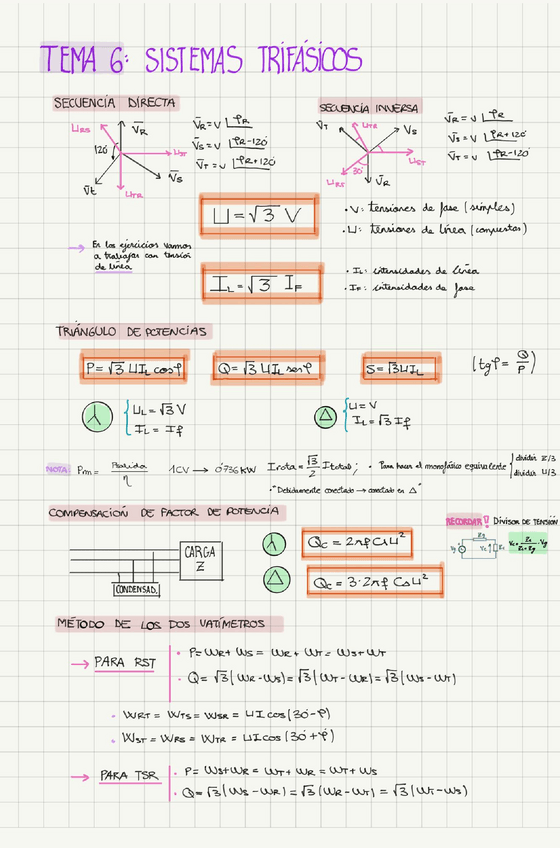 TEMA 6: SISTEMAS TRIFÁSICOS
SECUENCIA DIRECTA
SECUENCIA INVERSA
U_RS V̄_R
120° U_ST
V̄_t V̄_S
U_TR
V̄_R = V ⌊φ_R
V̄_S = V ⌊φ_R-120°
V̄_T = V ⌊φ_R+120°
V̄_T U_TR V_S
U_ST
30°
V̄_R
V̄_R = V ⌊φ_R
V̄_S = V ⌊φ_R+120°
V̄_T = V ⌊φ_R-120°
U = √3 V
• V: tensiones de fase (simples)
• U: tensiones de línea (compuestas)
→ En los ejercicios vamos
a trabajar con tensión
de línea
I_L = √3 I_F
• I_L: intensidades de línea
• I_F: intensidades de fase
TRIÁNGULO DE POTENCIAS
P = √3 U I_L cosφ
Q = √3 U I_L senφ
S = √3 U I_L
(tgφ = Q/P)
U_L = √3 V
I_L = I_f
U = V
I_L = √3 I_f
NOTA: Pm = Psalida/η 1CV → 0'736 KW I rota = √3/2 I total; • Para hacer el monofásico equivalente { dividir Z/3
dividir U/3
"Debidamente conectado → conectado en Δ"
COMPENSACIÓN DE FACTOR DE POTENCIA
RECORDAR!! DIVISOR DE TENSIÓN
CARGA
Z
CONDENSAD.
Q_C = 2πf C U²
Δ
Q_C = 3·2πf C U²
MÉTODO DE LOS DOS VATÍMETROS
→ PARA RST
• P = W_R + W_S = W_R + W_T = W_S + W_T
• Q = √3(W_R - W_S) = √3(W_T - W_R) = √3(W_S - W_T)
• W_RT = W_TS = W_SR = U I cos(30-φ)
• W_ST = W_RS = W_TR = U I cos(30+φ)
→ PARA TSR
• P = W_S + W_R = W_T + W_R = W_T + W_S
• Q = √3(W_S - W_R) = √3(W_R - W_T) = √3(W_T - W_S)